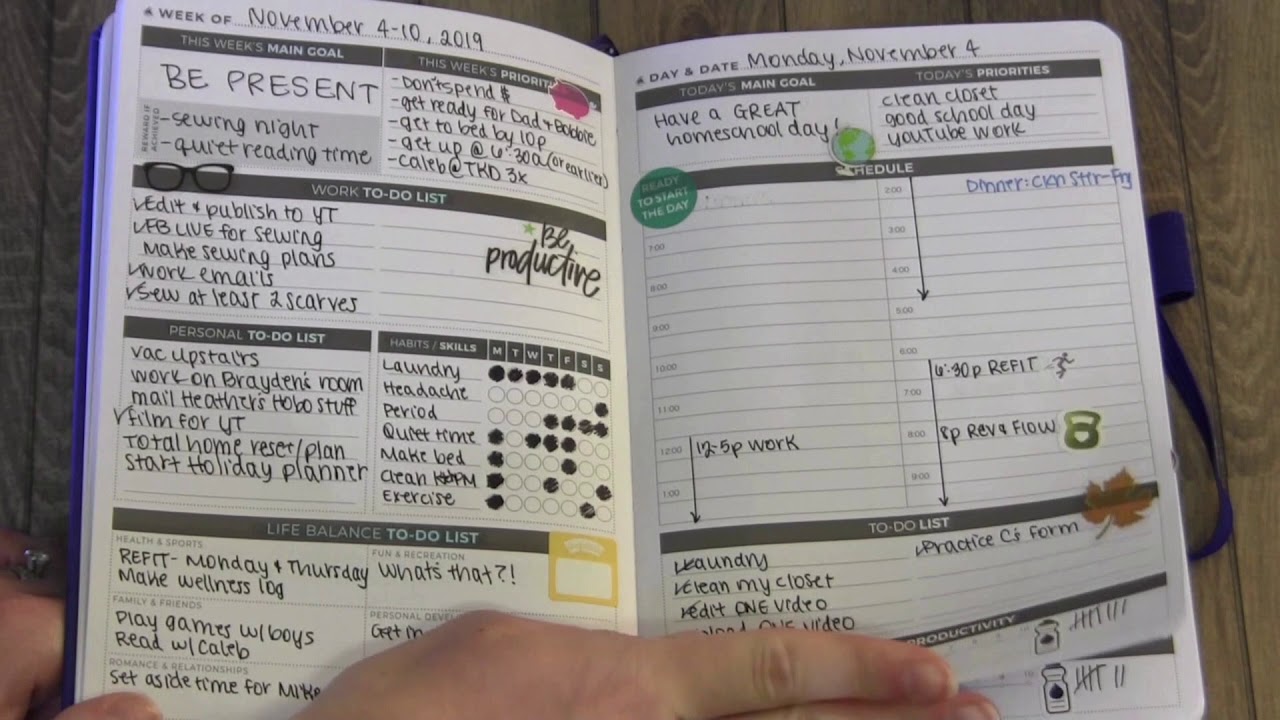 WEEK OF November 4-10, 2019
THIS WEEK'S MAIN GOAL
BE PRESENT
REWARD IF ACHIEVED
-sewing night
-quiet reading time
THIS WEEK'S PRIORITI
-Don't spend $
-get ready for Dad & Bobbie
-get to bed by 10p
-get up @ 6:30a (or earlier)
-Caleb @ TKD 3x
WORK TO-DO LIST
Edit & publish to YT
FB LIVE for sewing
Make sewing plans
work emails
Sew at least 2 scarves
Be
productive
PERSONAL TO-DO LIST
vac upstairs
work on Brayden's room
mail Heather's Hobo stuff
film for YT
Total home reset/plan
Start Holiday planner
HABITS / SKILLS M T W T F S S
Laundry
Headache
Period
Quiet time
Make bed
Clean PM
Exercise
LIFE BALANCE TO-DO LIST
HEALTH & SPORTS
REFIT- Monday & Thursday
Make wellness log
FUN & RECREATION
What's that?!
FAMILY & FRIENDS
Play games w/boys
Read w/Caleb
PERSONAL DEVEL
Get
ROMANCE & RELATIONSHIPS
Set aside time for Mike
DAY & DATE Monday, November 4
TODAY'S MAIN GOAL
Have a GREAT
homeschool day!
TODAY'S PRIORITIES
clean closet
good school day
YouTube work
HEDULE
READY
TO START
THE DAY
7:00
8:00
9:00
10:00
11:00
12:00 12-5p WORK
1:00
2:00 Dinner: Ckn Stir-Fry
3:00
4:00
5:00
6:00
6:30p REFIT
7:00
8:00 8p Rev & Flow
9:00
TO-DO LIST
Laundry
Clean my closet
edit ONE video
upload ONE video
Practice C's form
PRODUCTIVITY
10
10